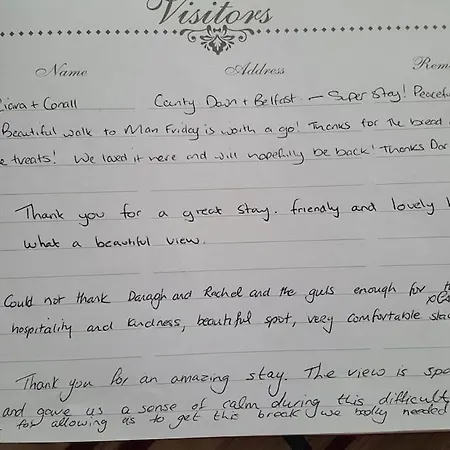 Visitors
Name Address Rem
Ciara + Conall County Down + Belfast - Super Stay! Peaceful
Beautiful walk to Man Friday is worth a go! Thanks for the bread
treats! We loved it here and will hopefully be back! Thanks Dar
Thank you for a great stay. friendly and lovely
what a beautiful view.
Could not thank Daragh and Rachel and the guls enough for
hospitality and kindness, beautiful spot, very comfortable
Thank you for an amazing stay. The view is spe
and gave us a sense of calm during this difficult
for allowing us to get this break we badly needed